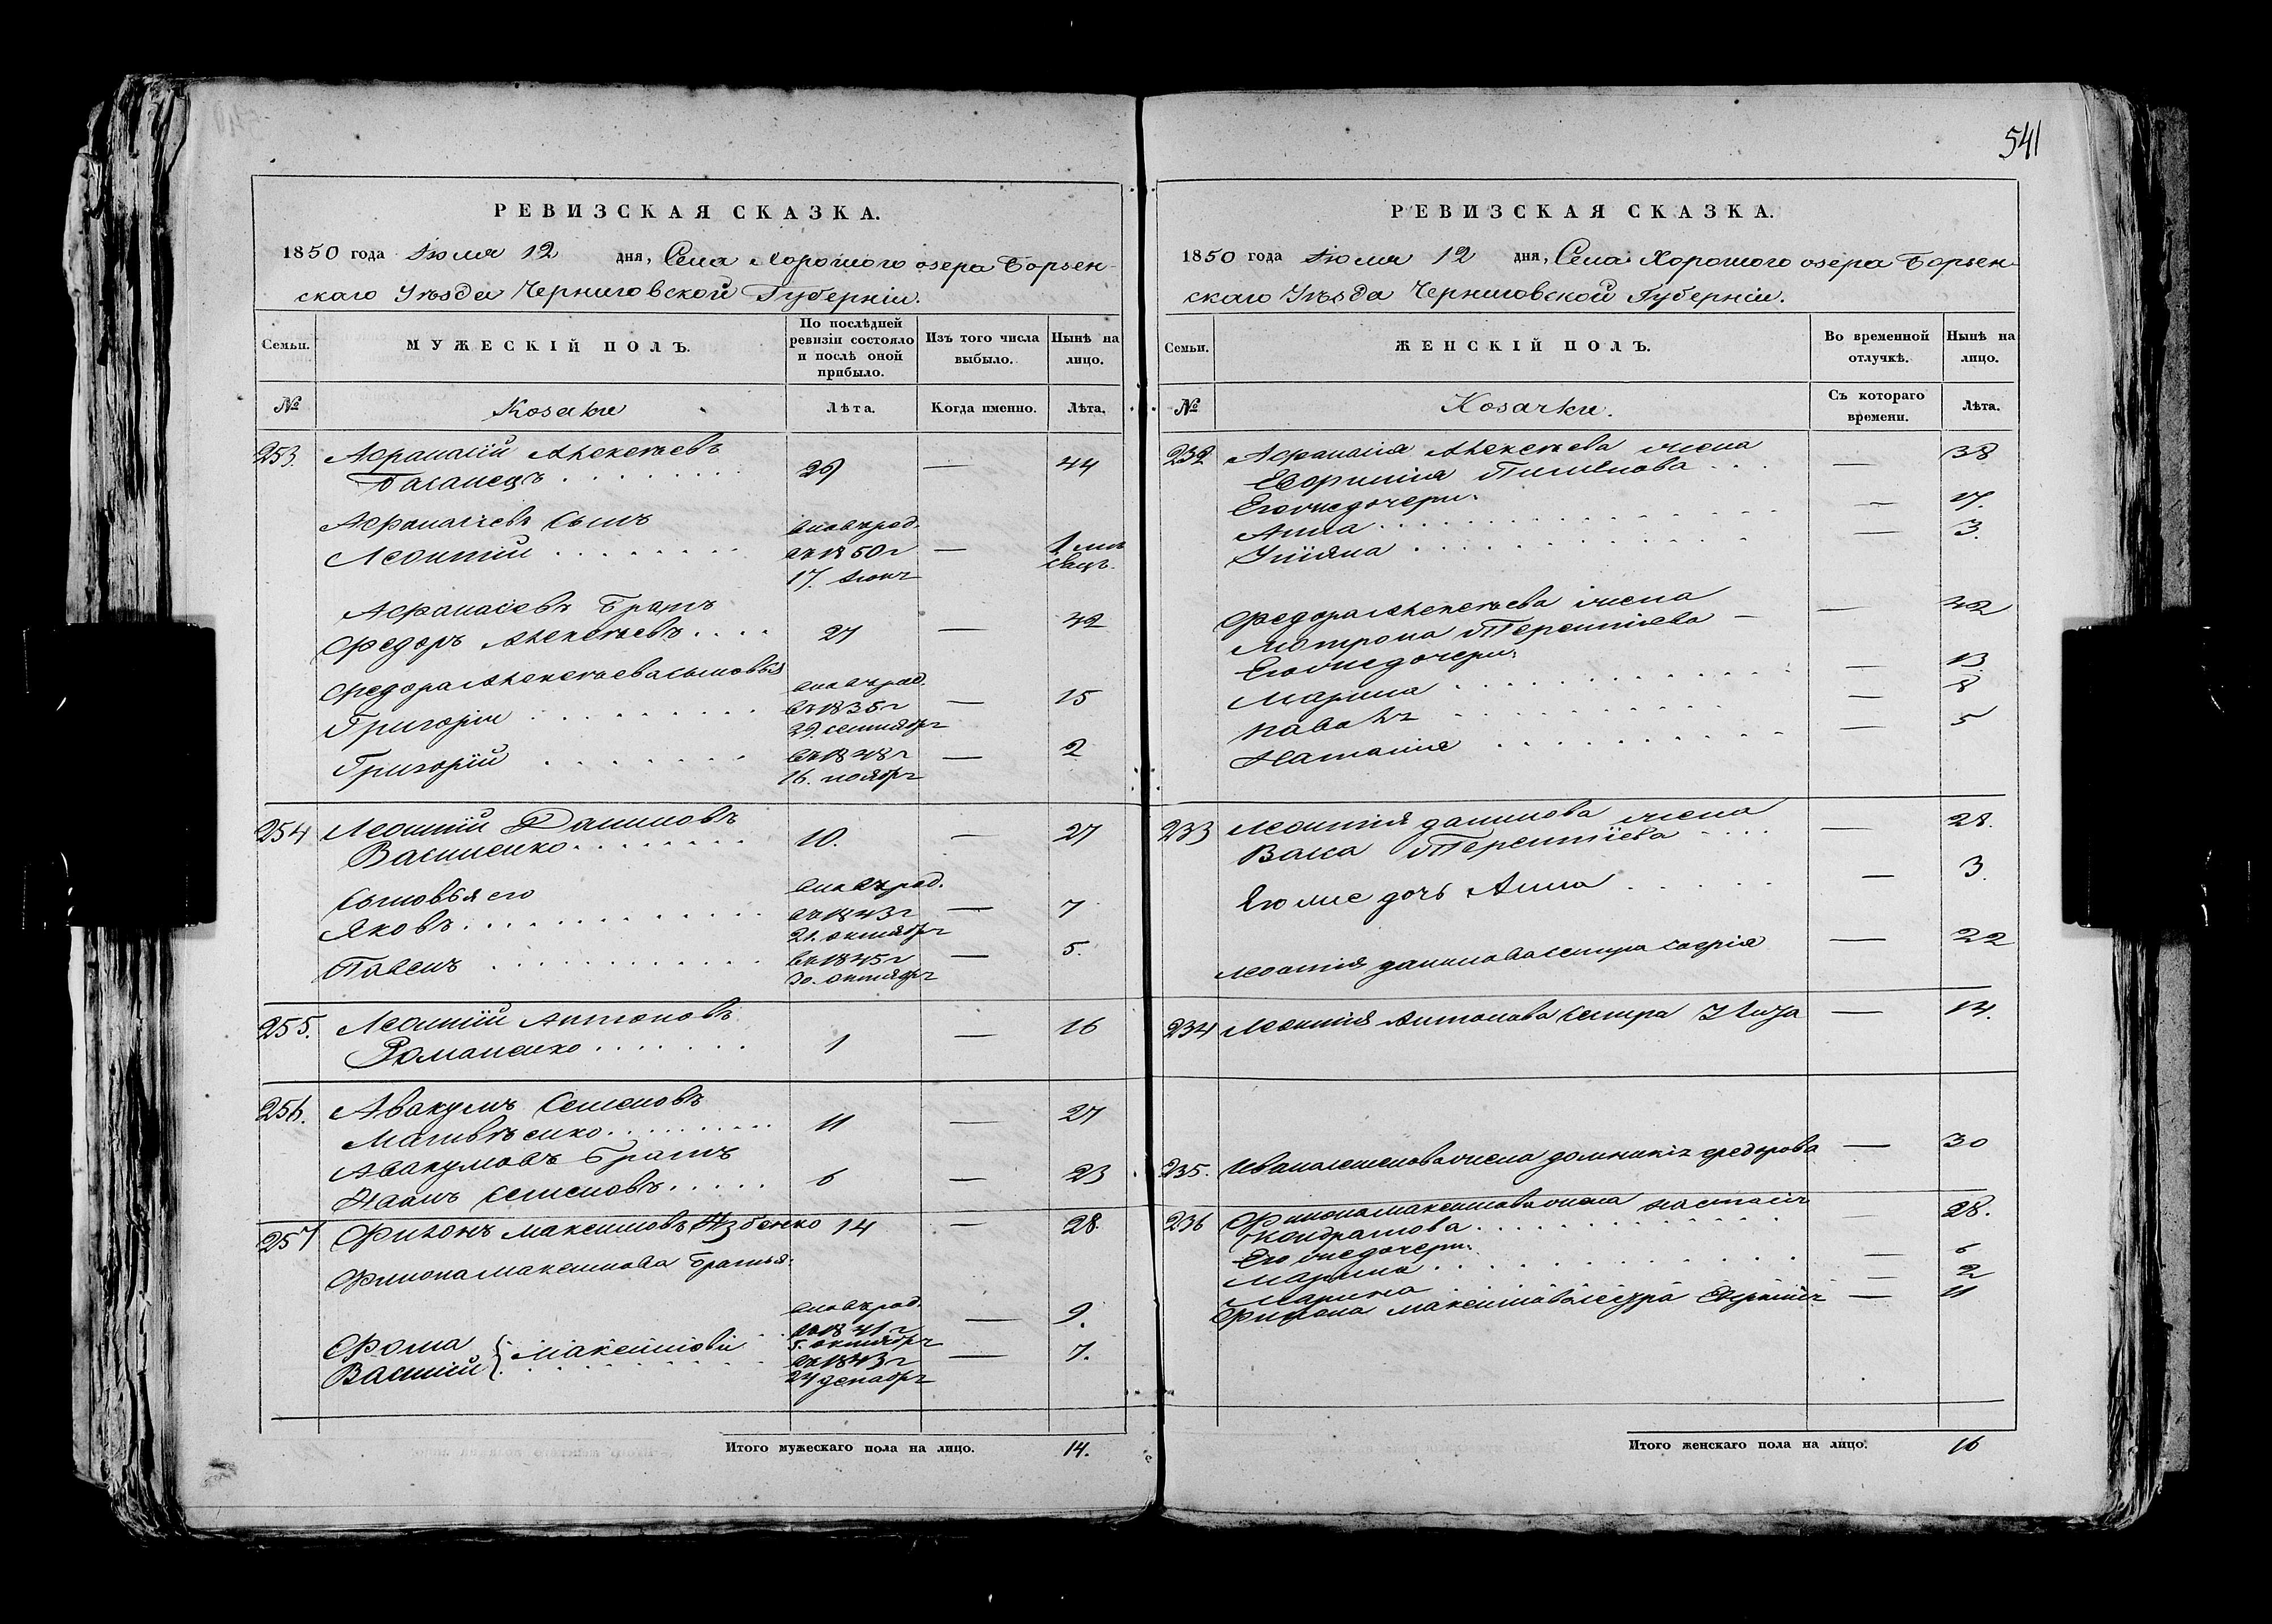 541
РЕВИЗСКАЯ СКАЗКА.
1850 года Іюля 12 дня, Села Хорошого озера Борзен-
скаго Уѣзда Черниговской Губерніи.
Семьи.
МУЖЕСКІЙ ПОЛЪ.
По послѣдней ревизіи состояло и послѣ оной прибыло.
Изъ того числа выбыло.
Нынѣ на лицо.
№ Козаки Лѣта. Когда именно. Лѣта.
253. Афанасій Алексѣевъ
Басанецъ 29 — 44
Афанасіевъ Сынъ вновь род.
Леонтій въ 1850 г — 1 мѣсяцъ.
17. Іюня
Афанасіевъ Братъ
Федоръ Алексѣевъ 27 — 42
Федора Алексѣева сыновья вновь род.
Григорій въ 1835 г — 15
29. сентября
Григорій въ 1848 г — 2
16. ноября
254 Леонтій Даниловъ
Василенко 10. — 27
Сыновья его вновь род.
Яковъ въ 1843 г — 7
21. октября
Павелъ въ 1845 г — 5.
30. октября
255. Леонтій Антоновъ
Романенко 1 — 16
256. Авакумъ Семеновъ
Матвѣенко 11 — 27
Авакумовъ Братъ
Иванъ Семеновъ 6 — 23
257 Филонъ Максимовъ 14 — 28.
Филона Максимова Братья.
вновь род.
Фома въ 1841 г — 9.
5. октября
Василій Максимови въ 1843 г — 7.
24 декабря
Итого мужескаго пола на лицо. 14.
РЕВИЗСКАЯ СКАЗКА.
1850 года Іюля 12 дня, Села Хорошого озера Борзен-
скаго Уѣзда Черниговской Губерніи.
Семьи.
ЖЕНСКІЙ ПОЛЪ.
Во временной отлучкѣ.
Нынѣ на лицо.
№ Козачки. Съ котораго времени. Лѣта.
232 Афанасія Алексѣева жена
Пименова — 38
Его же дочери:
Анна — 17.
Уліяна — 3.
Федора Алексѣева жена
Мотрона Терентіева — 42
Его же дочери:
Марина — 13.
— 8
Наталія — 5
233 Леонтія Данилова жена
Васса Терентіева — 28.
Его же дочь Анна — 3.
Леонтія Данилова сестра Софія — 22
234 Леонтія Антонова Сестра — 14.
235. Ивана Семенова жена Домникія Федорова — 30
236 Филона Максимова жена Настасія
Кондратова — 28.
Его же дочери:
Марина — 6
Марина — 2
Филона Максимова сестра — 11
Итого женскаго пола на лицо. 16